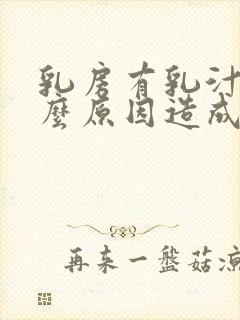 乳房有乳汁
麽原因造成
再来一盤菇凉